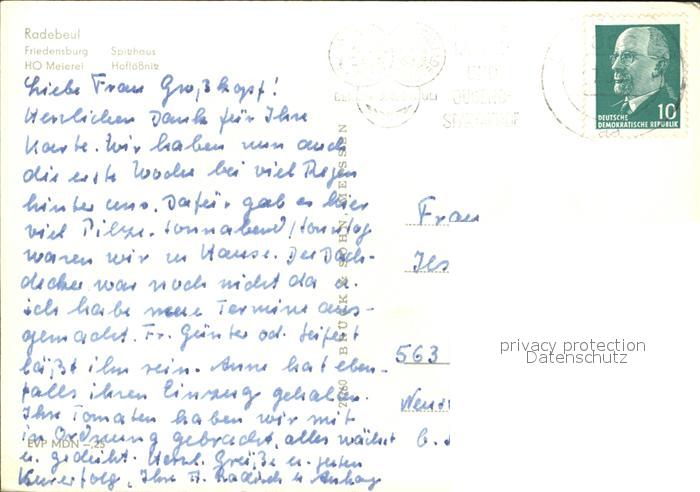 Radebeul
Friedensburg Spitzhaus
HO Meierei Hoflößnitz
Liebe Frau Großkopf!
Herzlichen Dank für Ihre
Karte. Wir haben nun auch
die erste Woche bei viel Regen
hinter uns. Dafür gab es hier
viel Pilze. Sonnabend/Sonntag
waren wir zu Hause. Der Dach-
decker war noch nicht da u.
ich habe neue Termine aus-
gemacht. Fr. Günter od. Seifert
läßt ihn rein. Anne hat eben-
falls ihren Einzug gehalten.
Ihre Tomaten haben wir mit
in Ordnung gebracht, alles wächst
u. gedeiht. Herzl. Grüße u. guten
Kurerfolg, Ihre H. Radisch u. Anhang
EVP MDN –,25
BRÜCK & SOHN, MEISSEN
DEUTSCHE
DEMOKRATISCHE REPUBLIK
10
Frau
Ils
563
b.
privacy protection
Datenschutz